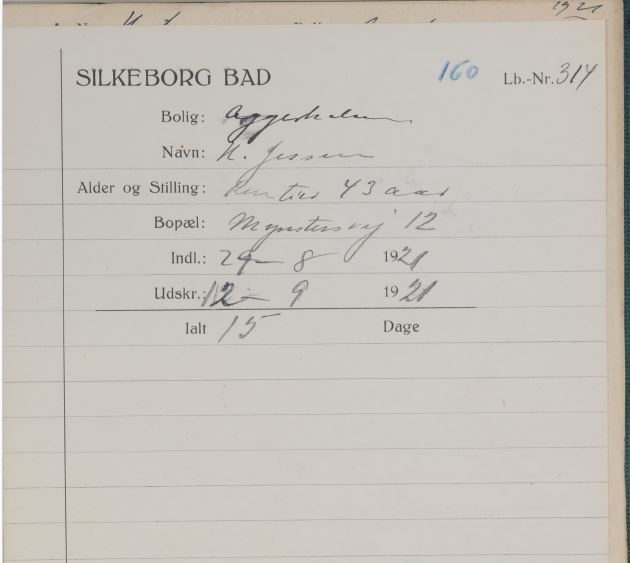 1921
SILKEBORG BAD 160 Lb.-Nr. 314
Bolig: Aggerholm
Navn: N. Jessen
Alder og Stilling: Rentier 43 aar
Bopæl: Mynstersvej 12
Indl.: 29 - 8 1921
Udskr.: 12 - 9 1921
Ialt 15 Dage